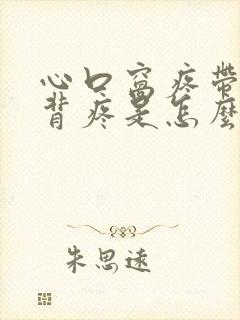 心口窩疼帶
背疼是怎麼
朱思遠